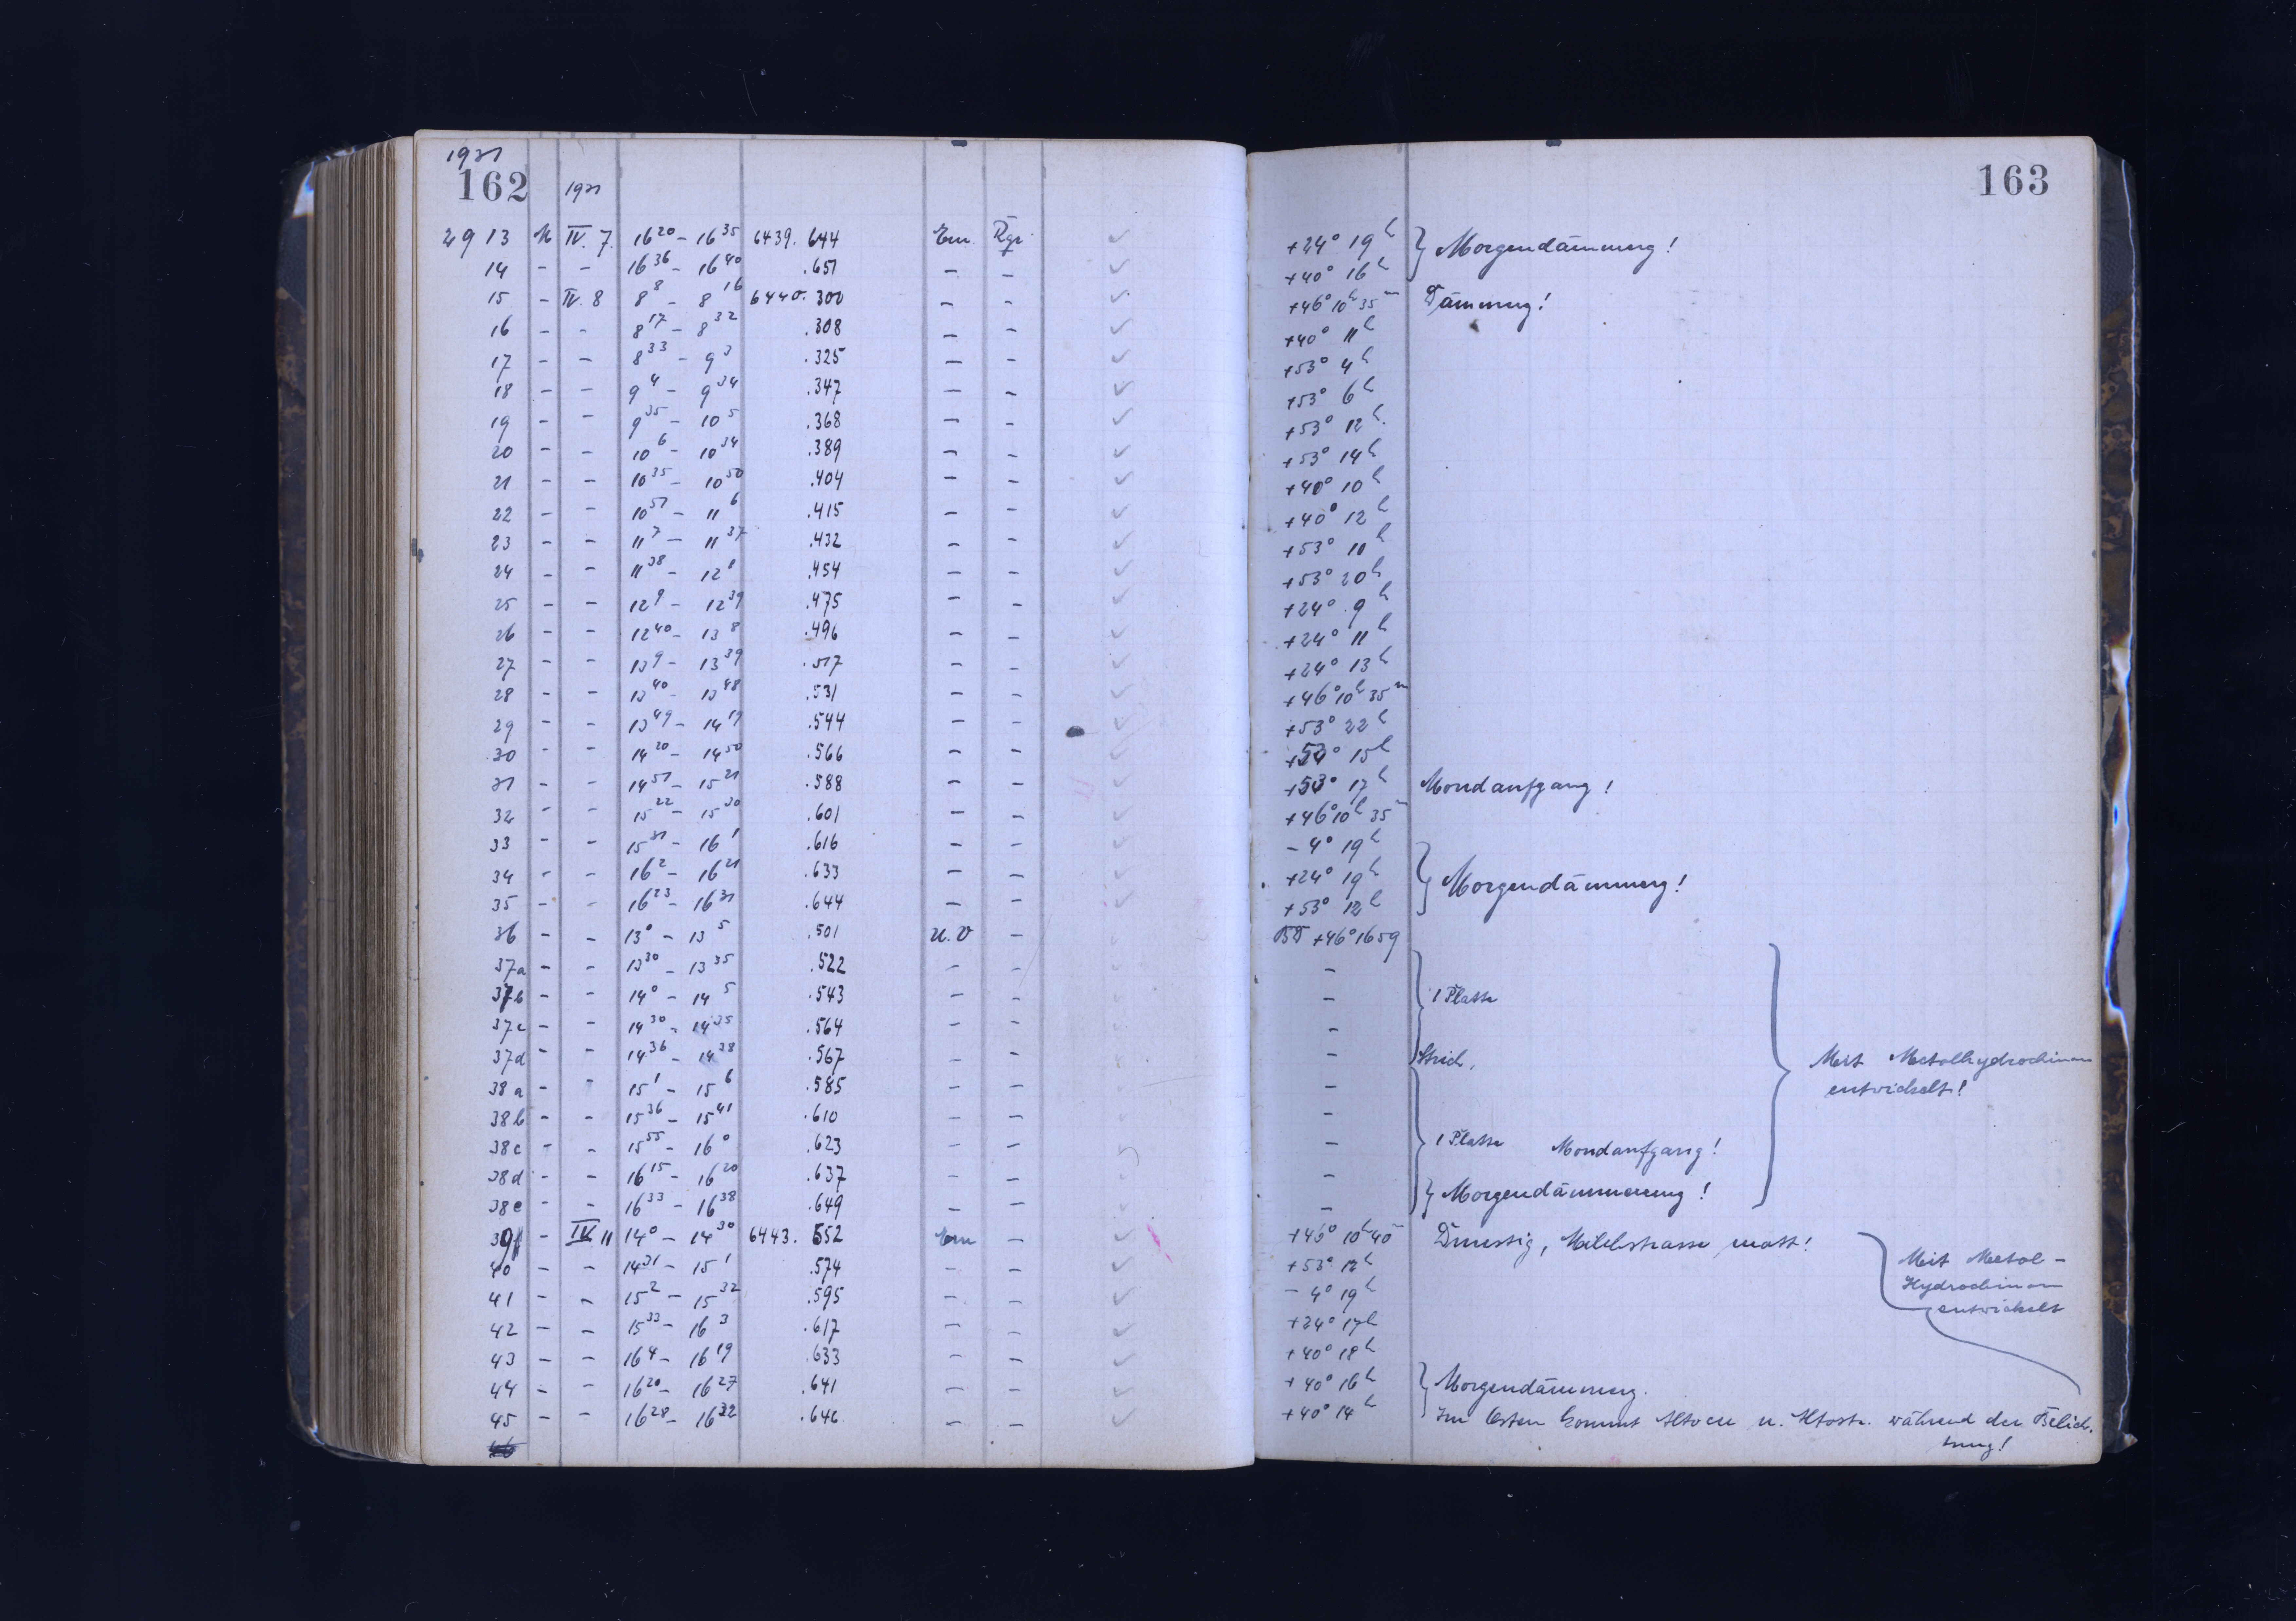 1931
162 1931 163
2913 M IV. 7. 16 20 – 16 35 6439. 644 Em. Rgr. +24° 19h } Morgendämmerg!
14 – – 16 36 – 16 40 .651 – – +40° 16h
15 – IV. 8 8 8 – 8 16 6440. 300 – – +46° 10h 35m Dämmerg!
16 – – 8 17 – 8 32 .308 – – +40° 11h
17 – – 8 33 – 9 3 .325 – – +53° 4h
18 – – 9 4 – 9 34 .347 – – +53° 6h
19 – – 9 35 – 10 5 .368 – – +53° 12h
20 – – 10 6 – 10 34 .389 – – +53° 14h
21 – – 10 35 – 10 50 .404 – – +40° 10h
22 – – 10 51 – 11 6 .415 – – +40° 12h
23 – – 11 7 – 11 37 .432 – – +53° 10h
24 – – 11 38 – 12 8 .454 – – +53° 20h
25 – – 12 9 – 12 39 .475 – – +24° 9h
26 – – 12 40 – 13 8 .496 – – +24° 11h
27 – – 13 9 – 13 39 .517 – – +24° 13h
28 – – 13 40 – 13 48 .531 – – +46° 10h 35m
29 – – 13 49 – 14 19 .544 – – +53° 22h
30 – – 14 20 – 14 50 .566 – – +53° 15h
31 – – 14 51 – 15 21 .588 – – +53° 17h Mondaufgang!
32 – – 15 22 – 15 30 .601 – – +46° 10h 35m
33 – – 15 31 – 16 1 .616 – – – 4° 19h
34 – – 16 2 – 16 21 .633 – – +24° 19h } Morgendämmerg!
35 – – 16 23 – 16 31 .644 – – +53° 12h
36 – – 13 0 – 13 5 .501 u.v – BD +46° 1659
37a – – 13 30 – 13 35 .522 – – –
37b – – 14 0 – 14 5 .543 – – – 1 Platte
37c – – 14 30 – 14 35 .564 – – –
37d – – 14 36 – 14 38 .567 – – – Strich. } Mit Metolhydrochinon
38a – – 15 1 – 15 6 .585 – – – entwickelt!
38b – – 15 36 – 15 41 .610 – – –
38c – – 15 55 – 16 0 .623 – – – 1 Platte Mondaufgang!
38d – – 16 15 – 16 20 .637 – – –
38e – – 16 33 – 16 38 .649 – – – } Morgendämmerung!
39 – IV. 11 14 0 – 14 30 6443. 552 Em – +46° 10h 40m Dunstig, Milchstrasse matt!
40 – – 14 31 – 15 1 .574 – – +53° 12h Mit Metol-
41 – – 15 2 – 15 32 .595 – – – 4° 19h Hydrochinon
entwickelt
42 – – 15 33 – 16 3 .617 – – +24° 17h
43 – – 16 4 – 16 19 .633 – – +40° 18h
44 – – 16 20 – 16 27 .641 – – +40° 16h } Morgendämmerg.
45 – – 16 28 – 16 32 .646 – – +40° 14h Im Osten kommt Altocu u. Altostr. während der Belich.
tung!